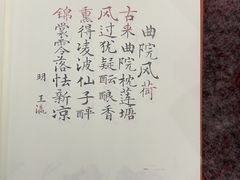 曲院风荷
古来曲院枕莲塘
风过犹疑酝酿香
熏得凌波仙子醉
锦裳零落怯新凉
明 王瀛